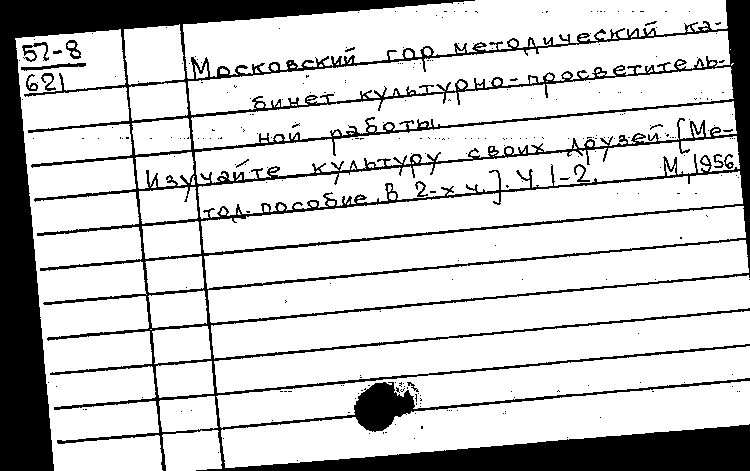 57-8
621
Московский гор. методический ка-
бинет культурно-просветитель-
ной работы.
Изучайте культуру своих друзей. [Ме-
тод. пособие. В 2-х ч.]. Ч. 1-2. М., 1956.